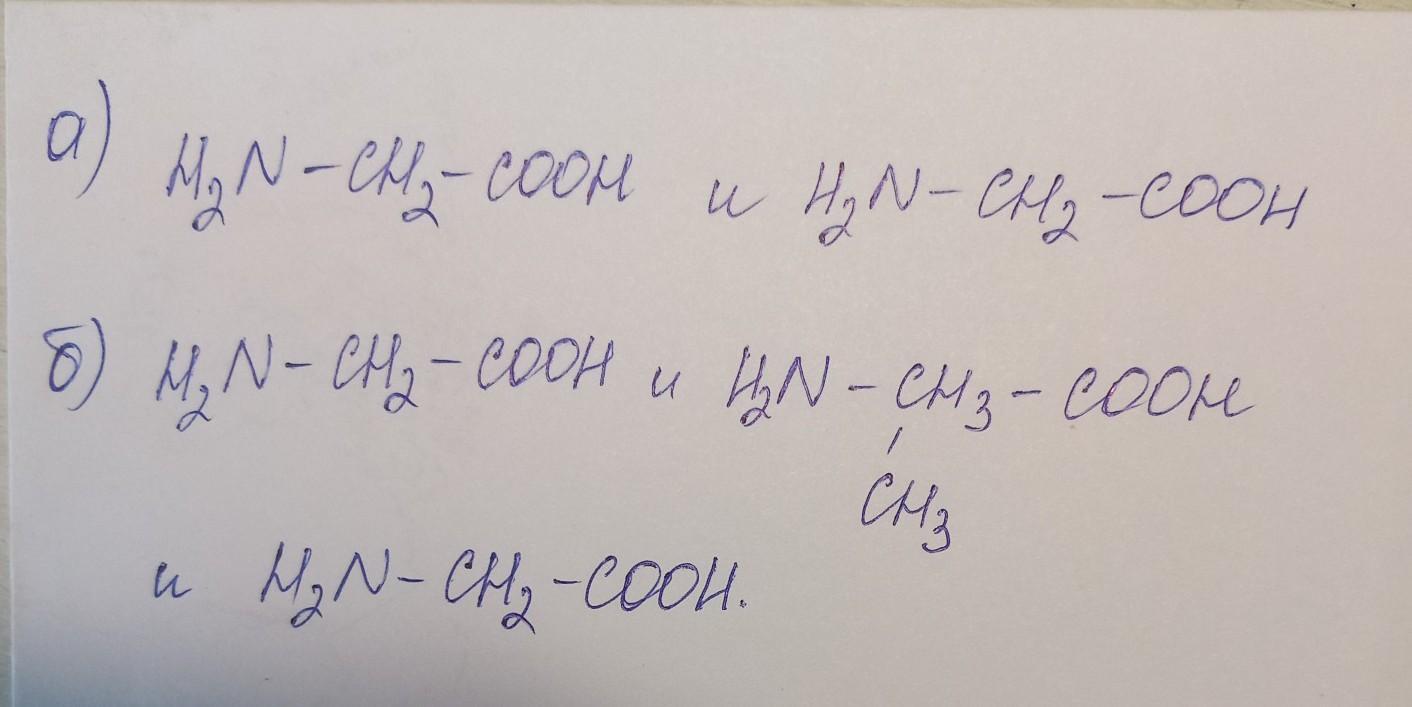 а) H₂N – CH₂ – COOH и H₂N – CH₂ – COOH
б) H₂N – CH₂ – COOH и H₂N – CH₃ – COOH
CH₃
и H₂N – CH₂ – COOH.